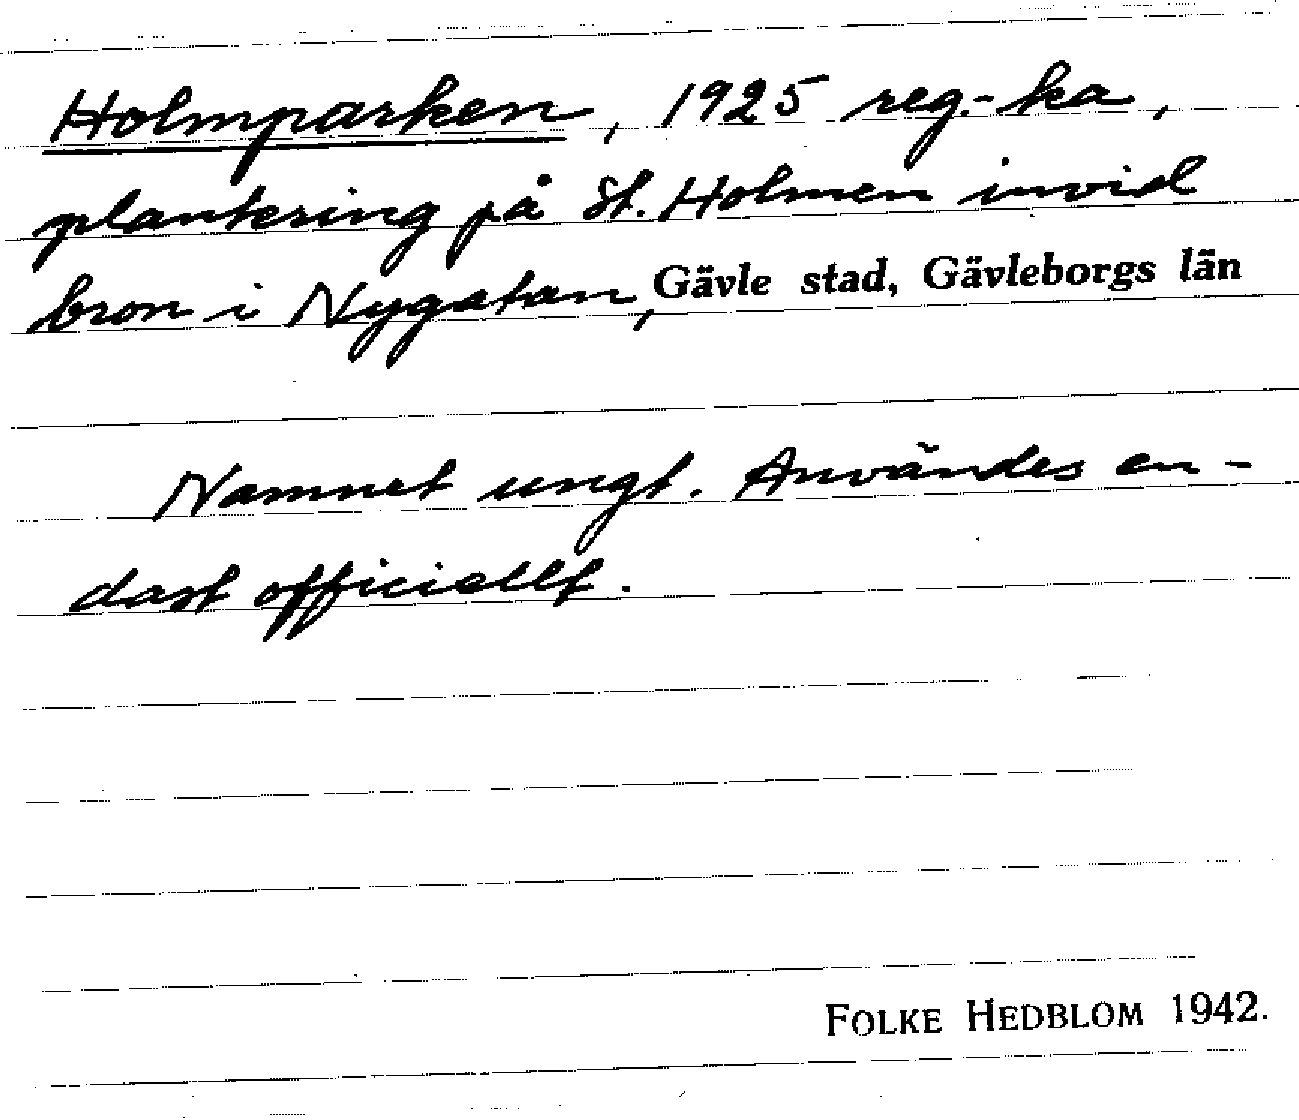 Holmparken, 1925 reg.-ka,
plantering på St. Holmen invid
bron i Nygatan, Gävle stad, Gävleborgs län
Namnet ungt. Användes en-
dast officiellt.
FOLKE HEDBLOM 1942.